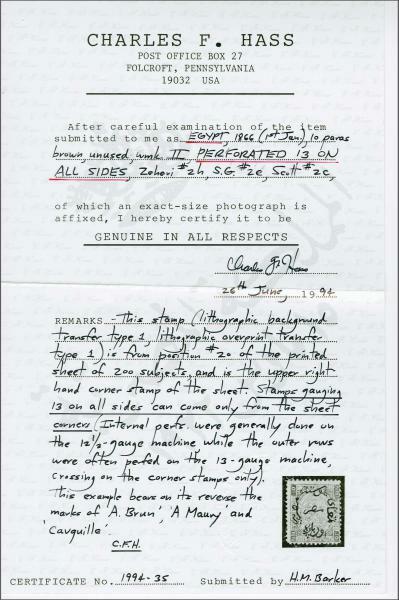 CHARLES F. HASS
POST OFFICE BOX 27
FOLCROFT, PENNSYLVANIA
19032 USA
After careful examination of the item
submitted to me as EGYPT, 1866 (1st Jan.) 10 paras
brown, unused, wmk II, PERFORATED 13 ON
ALL SIDES, Zeheri #2h, S.G. #2e, Scott #2c,
of which an exact-size photograph is
affixed, I hereby certify it to be
GENUINE IN ALL RESPECTS
Charles F. Hass
26th June, 1994
REMARKS - This stamp (lithographic background
transfer type 1, lithographic overprint transfer
type 1) is from position #20 of the printed
sheet of 200 subjects, and is the upper right
hand corner stamp of the sheet. Stamps gauging
13 on all sides can come only from the sheet
corners (Internal perfs. were generally done on
the 12½-gauge machine while the outer rows
were often perfed on the 13-gauge machine,
crossing on the corner stamps only).
This example bears on its reverse the
marks of 'A. Brun', 'A Maury' and
'Cavquille'.
C.F.H.
CERTIFICATE No. 1994-35 Submitted by H.M. Barker